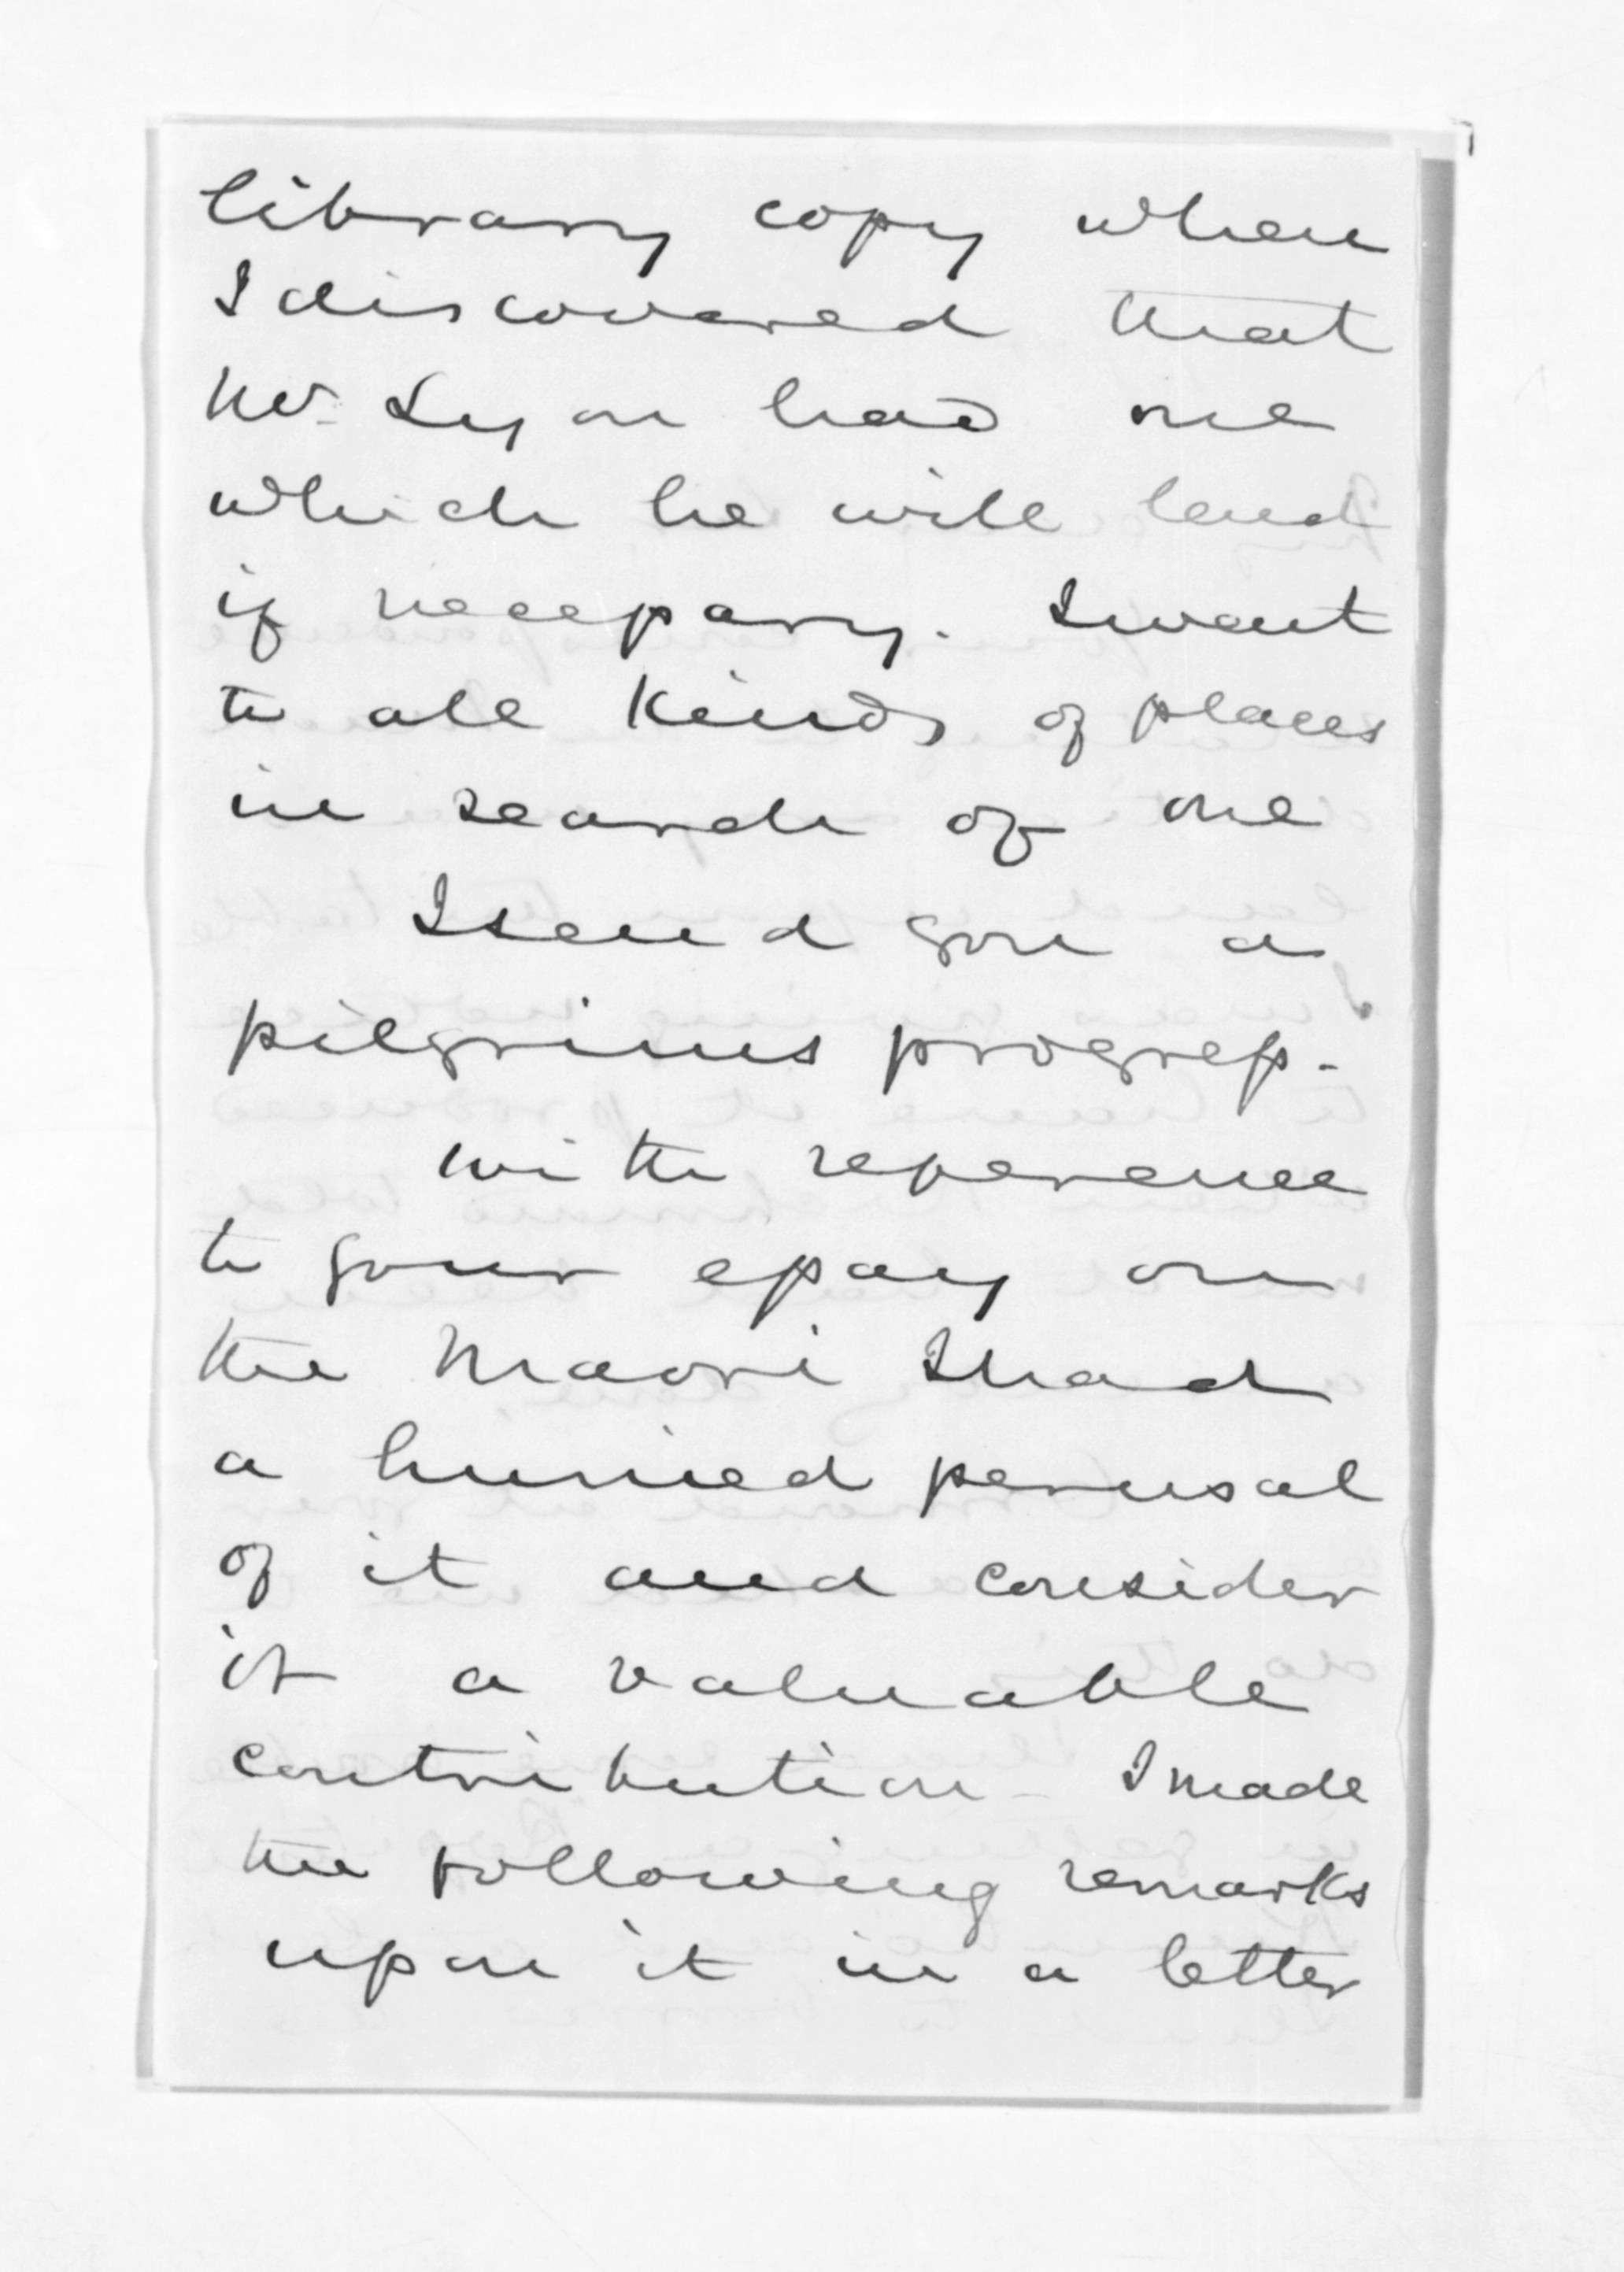 library copy when
I discovered that
Mr. Lyon had one
which he will lend
if necessary. I went
to all kinds of places
in search of one
I send you a
pilgrims progress.
with reference
to your essay on
the Maori I had
a hurried perusal
of it and consider
it a valuable
contribution - I made
the following remarks
upon it in a letter